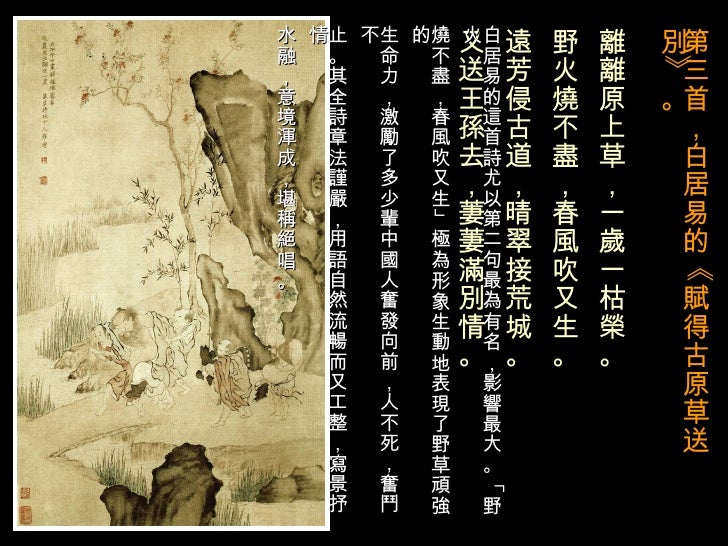 第三首，白居易的《賦得古原草送
別》。
離離原上草，一歲一枯榮。
野火燒不盡，春風吹又生。
遠芳侵古道，晴翠接荒城。
又送王孫去，萋萋滿別情。
白居易的這首詩尤以第二句最為有名，影響最大。「野
火
燒不盡，春風吹又生」極為形象生動地表現了野草頑強
的
生命力，激勵了多少輩中國人奮發向前，人不死，奮鬥
不
止。其全詩章法謹嚴，用語自然流暢而又工整，寫景抒
情
水融，意境渾成，堪稱絕唱。